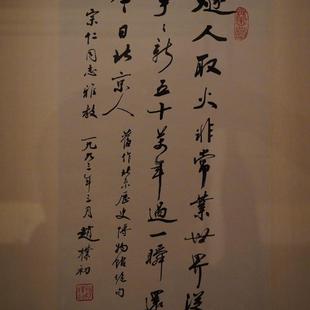 燧人取火非常業世界從
事〻新五十萬年過一瞬還
今日北京人
舊作北京歷史博物館絕句
宗仁同志雅教
一九九三年三月 趙樸初